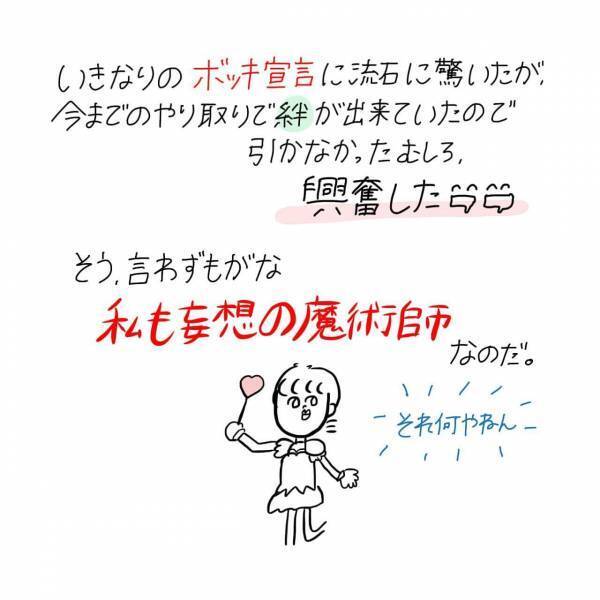 いきなりのボッキ宣言に流石に驚いたが、
今までのやり取りで絆が出来ていたので
引かなかったむしろ、
興奮した
そう、言わずもがな
私も妄想の魔術師
なのだ。
それ何やねん